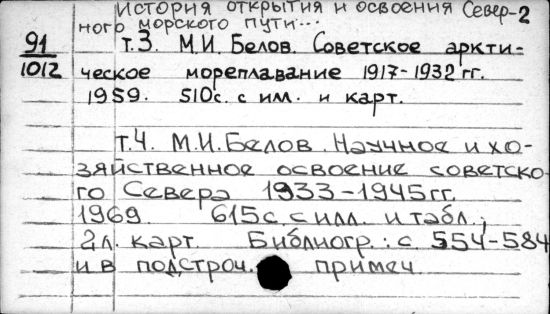 История открытия и освоения Север-2
ного морского пути...
91
1012
т.3. М.И. Белов. Советское аркти-
ческое мореплавание 1917-1932 гг.
1959. 510с. с ил. и карт.
т.4. М.И. Белов. Научное и хо-
зяйственное освоение советско-
го Севера 1933-1945 гг.
1969. 615 с. с илл. и табл.;
2л. карт. Библиогр.: с 554-584
и в подстроч. примеч.